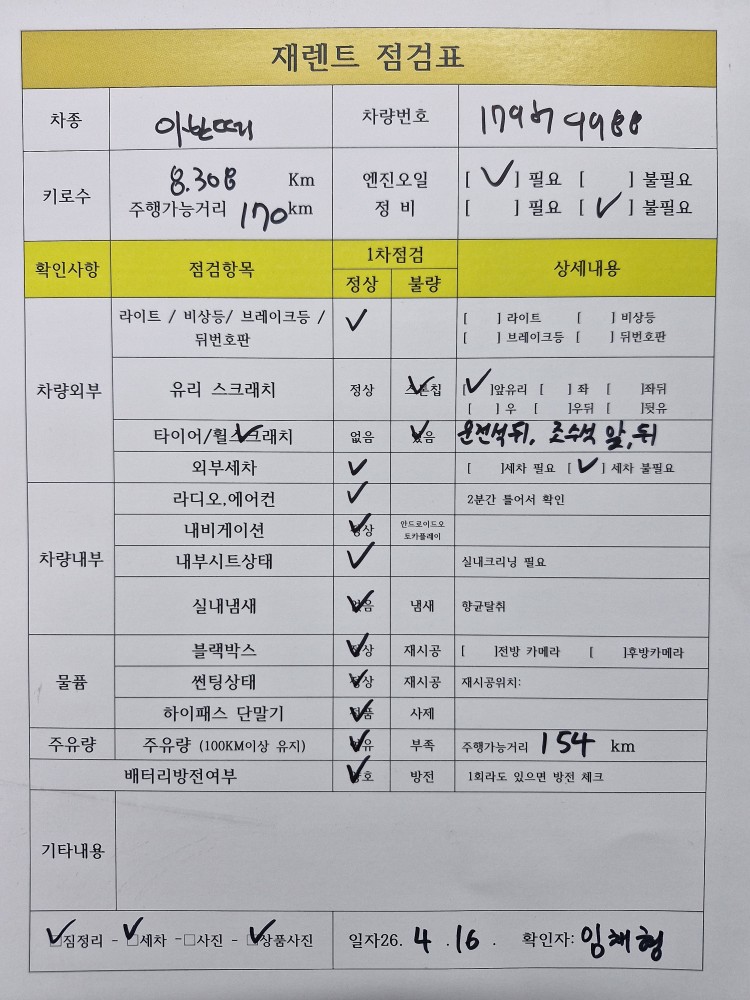 재렌트 점검표
차종 아반떼 차량번호 179허9988
키로수 8.308 Km 엔진오일 [ ✓ ] 필요 [ ] 불필요
주행가능거리 170 km 정 비 [ ] 필요 [ ✓ ] 불필요
확인사항 점검항목 1차점검 상세내용
정상 불량
차량외부
라이트 / 비상등/ 브레이크등 / ✓ [ ] 라이트 [ ] 비상등
뒤번호판 [ ] 브레이크등 [ ] 뒤번호판
유리 스크래치 정상 스톤칩 ✓ [ ✓ ]앞유리 [ ] 좌 [ ]좌뒤
[ ] 우 [ ]우뒤 [ ]뒷유
타이어/휠스크래치 ✓ 없음 있음 ✓ 운전석뒤, 조수석 앞,뒤
외부세차 ✓ [ ]세차 필요 [ ✓ ] 세차 불필요
차량내부
라디오,에어컨 ✓ 2분간 틀어서 확인
내비게이션 정상 ✓ 안드로이드오
토카플레이
내부시트상태 ✓ 실내크리닝 필요
실내냄새 없음 ✓ 냄새 향균탈취
물품
블랙박스 정상 ✓ 재시공 [ ]전방 카메라 [ ]후방카메라
썬팅상태 정상 ✓ 재시공 재시공위치:
하이패스 단말기 정품 ✓ 사제
주유량 주유량 (100KM이상 유지) ✓ 부족 주행가능거리 154 km
배터리방전여부 양호 ✓ 방전 1회라도 있으면 방전 체크
기타내용
✓ □짐정리 - ✓ □세차 - □사진 - ✓ □상품사진 일자26. 4 . 16 . 확인자: 임채형